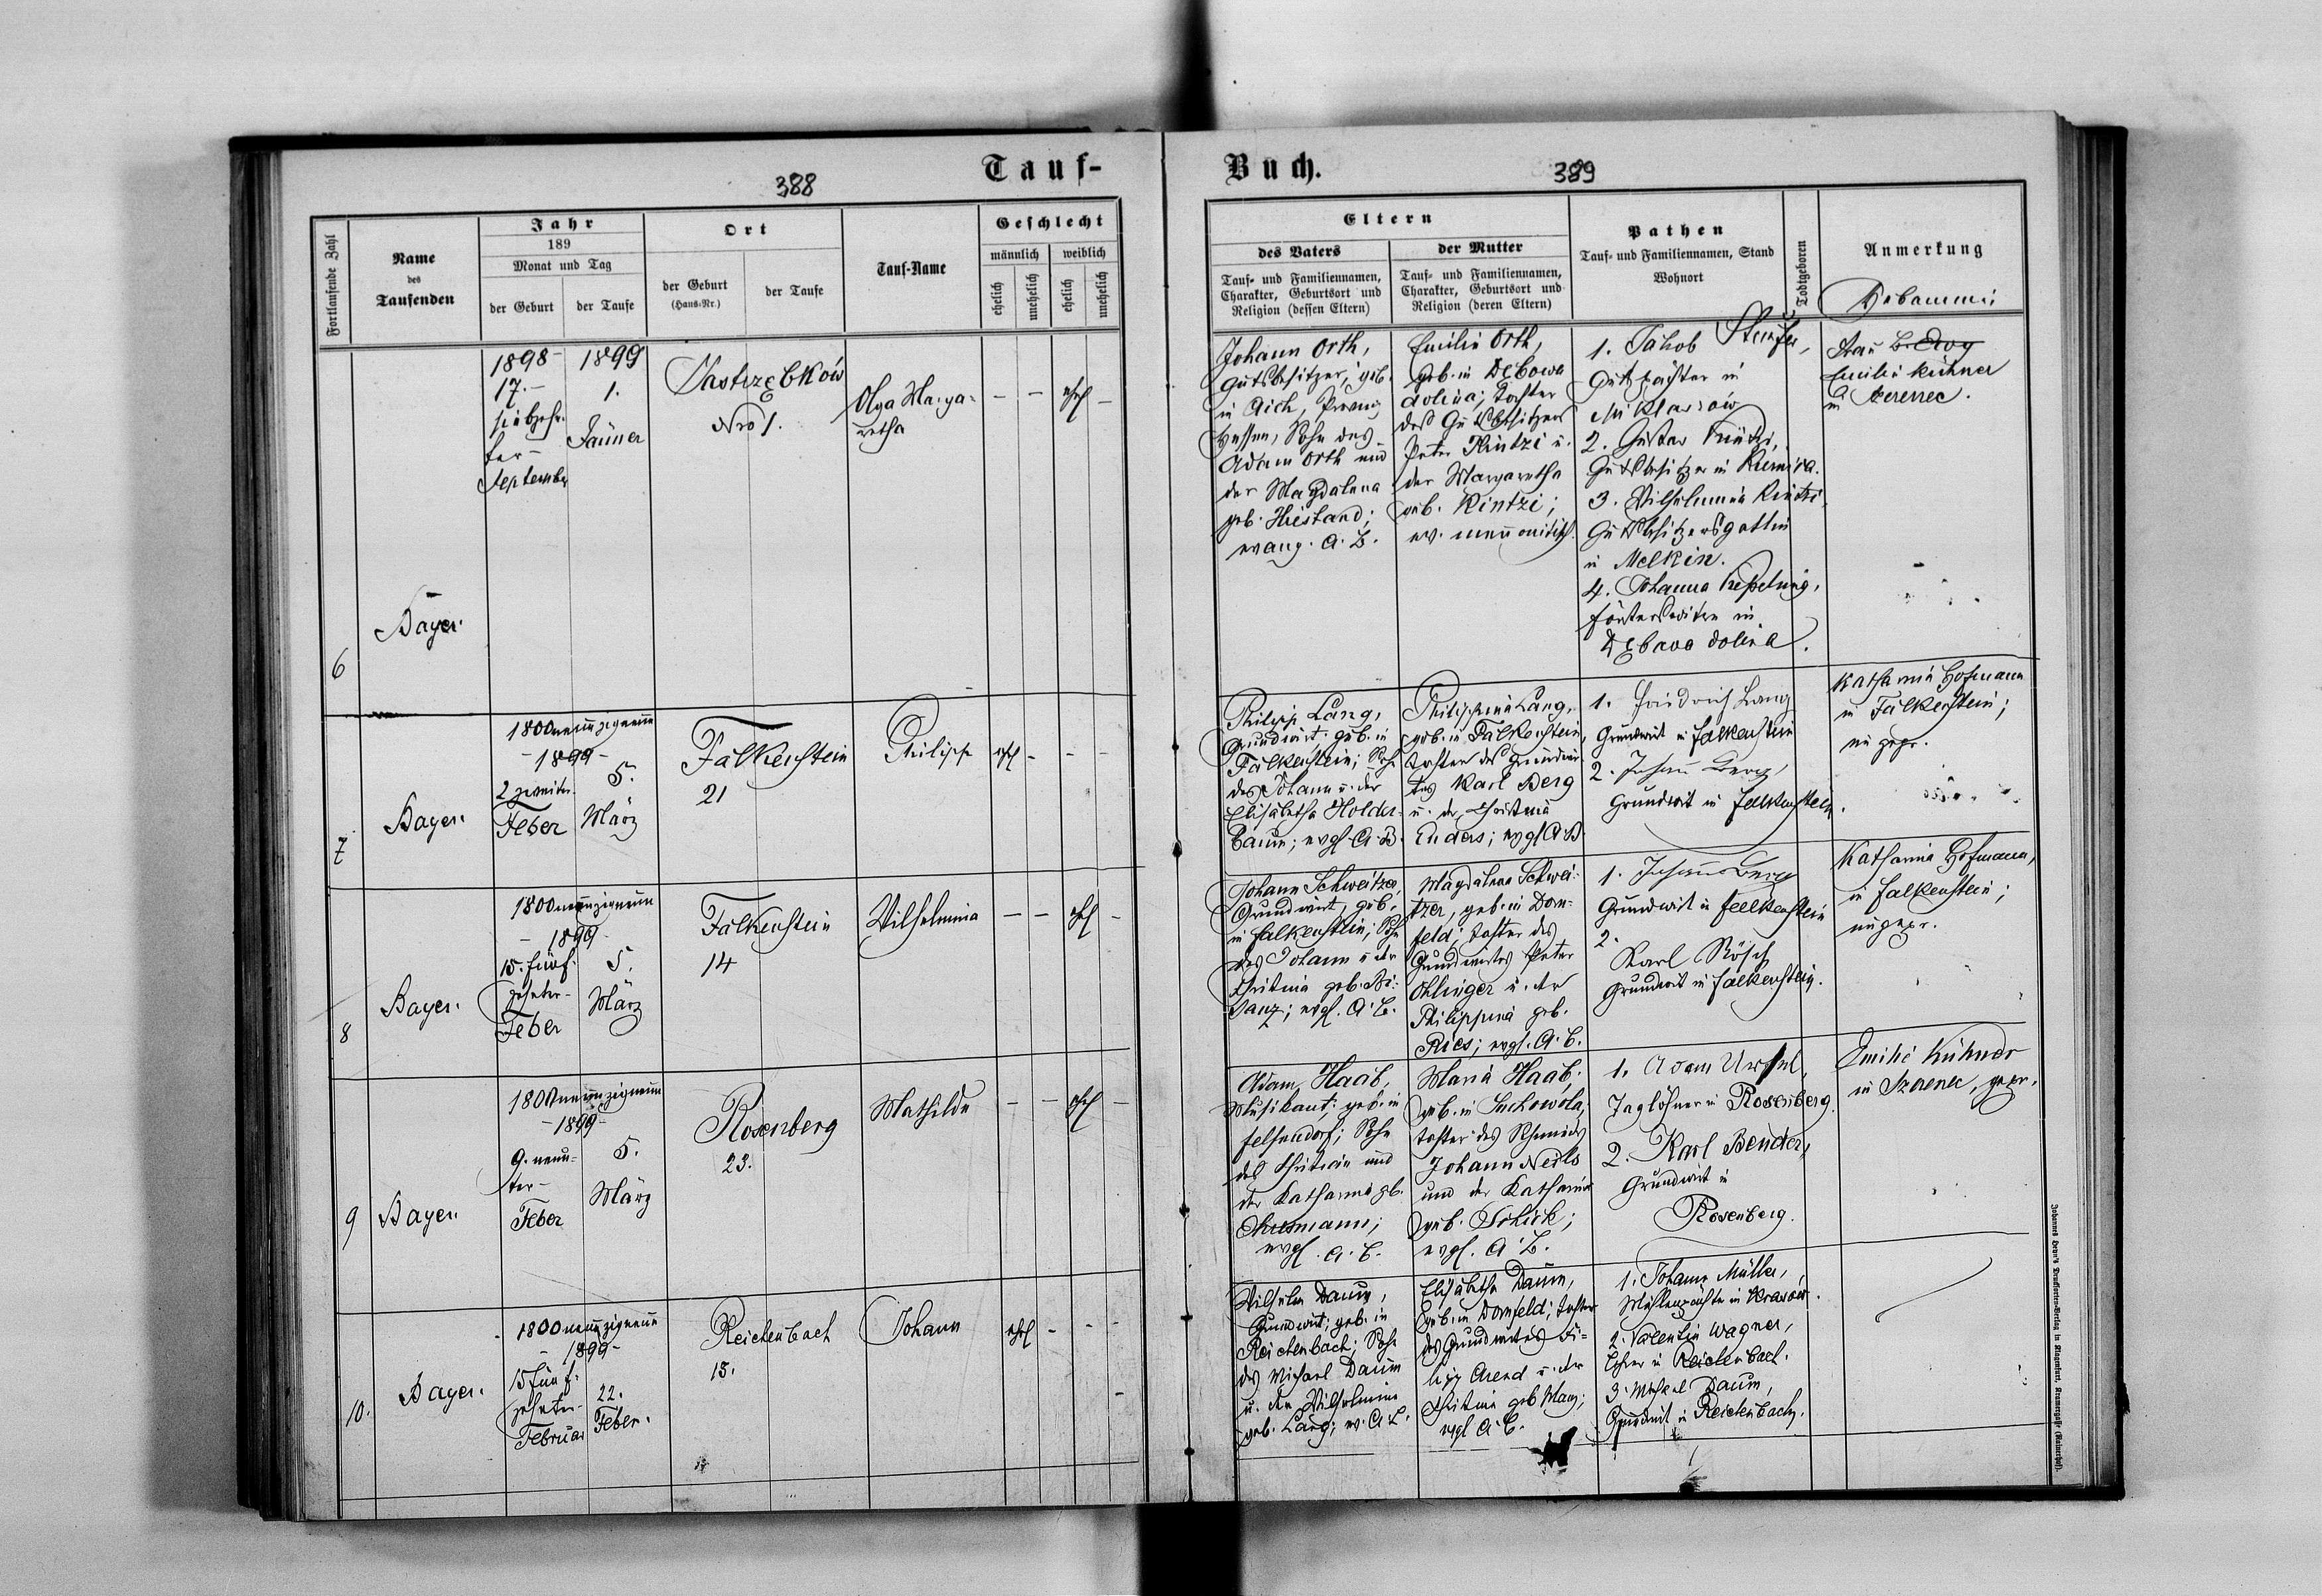 Tauf-
388
Fortlaufende Zahl
Name
des
Taufenden
Jahr
189
Monat und Tag
der Geburt
der Taufe
Ort
der Geburt
(Haus-Nr.)
der Taufe
Tauf-Name
Geschlecht
männlich
weiblich
ehelich
unehelich
ehelich
unehelich
6
Bayer.
1898
17.-
siebzehn-
ter-
September
1899
1.
Jänner
Jastrzębków
Nro 1.
Olga Marga-
retha
- - ehel -
7
Bayer.
1800neunzigneun
-1899-
2 zweiter-
Feber
5.
März
Falkenstein
21
Philipp
ehel - - -
8
Bayer.
1800neunzigneun
-1899-
15. fünf-
zehnter-
Feber
5.
März
Falkenstein
14
Wilhelmina
- - ehel -
9
Bayer.
1800neunzigneun
-1899-
9. neun-
ter-
Feber
5.
März
Rosenberg
23.
Mathilde
- - ehel -
10.
Bayer.
1800neunzigneun
-1899-
15 fünf-
zehnter-
Februar
22.
Feber.
Reichenbach
15.
Johann
ehel - - -
Buch.
389
Eltern
des Vaters
Tauf- und Familiennamen,
Charakter, Geburtsort und
Religion (dessen Eltern)
der Mutter
Tauf- und Familiennamen,
Charakter, Geburtsort und
Religion (deren Eltern)
Pathen
Tauf- und Familiennamen, Stand
Wohnort
Todtgeboren
Anmerkung
Hebamme
Johann Orth,
Gutsbesitzer, geb.
in Aich, Provinz
Hessen, Sohn des
Adam Orth und
der Magdalena
geb. Hiestand;
evang. A. B.
Emilie Orth,
geb. in Dębowa
dolina; Tochter
des Gutsbesitzers
Peter Kintzi u.
der Margaretha
geb. Kintzi;
ev. mennonitisch.
1. Jakob
Gutspächter in
2. Gustav Kintzi,
Gutsbesitzer in
3. Wilhelmina Kintzi,
Gutsbesitzersgattin
in Melkin.
4. Johanna
in
Dębowa dolina.
Frau
Emilie Kühner
in Szczerzec.
Philipp Lang,
Grundwirt geb. in
Falkenstein; Sohn
des Johann u. der
Elisabetha Holder-
baum; evgl. A. B.
Philippina Lang,
geb. in Falkenstein,
Tochter des Grundwir-
tes Karl Berg
u. der Christina
Enders; evgl A. B.
1. Friedrich Lang
Grundwirt in Falkenstein
2. Johann Berg,
Grundwirt in Falkenstein.
Katharina Hofmann
in Falkenstein;
ungepr.
Johann Schweitzer,
Grundwirt, geb.
in Falkenstein; Sohn
des Johann u. der
Christina geb. Bi-
sanz; evgl. A. B.
Magdalena Schwei-
tzer, geb. in Dorn-
feld; Tochter des
Grundwirtes Peter
Ohlinger u. der
Philippina geb.
Ries; evgl. A. B.
1. Johann Berg
Grundwirt in Falkenstein
2.
Karl Rösch
Grundwirt in Falkenstein.
Katharina Hofmann,
in Falkenstein;
ungepr.
Adam Haab,
Musikant; geb. in
Felsendorf; Sohn
des Christian und
der Katharina gb.
evgl. A. B.
Maria Haab.
geb. in Suchowola,
Tochter des Schmieds
Johann Neils
und der Katharina
geb. Schick;
evgl. A. B.
1. Adam
Taglöhner in Rosenberg.
2. Karl Bender,
Grundwirt in
Rosenberg.
Emilie Kühner
in Szczerzec, gepr.
Wilhelm Daum,
Grundwirt; geb. in
Reichenbach; Sohn
des Michael Daum
u. der Wilhelmina
geb. Lang; ev. A. B.
Elisabetha Daum,
geb. in Dornfeld; Tochter
des Grundwirtes Fi-
lipp Arend u. der
Christina geb Manz;
evgl A. B.
1. Johann Müller,
Mühlenpächter in Krasów.
2. Valentin Wagner,
Lehrer in Reichenbach.
3. Michael Daum,
Grundwirt in Reichenbach.